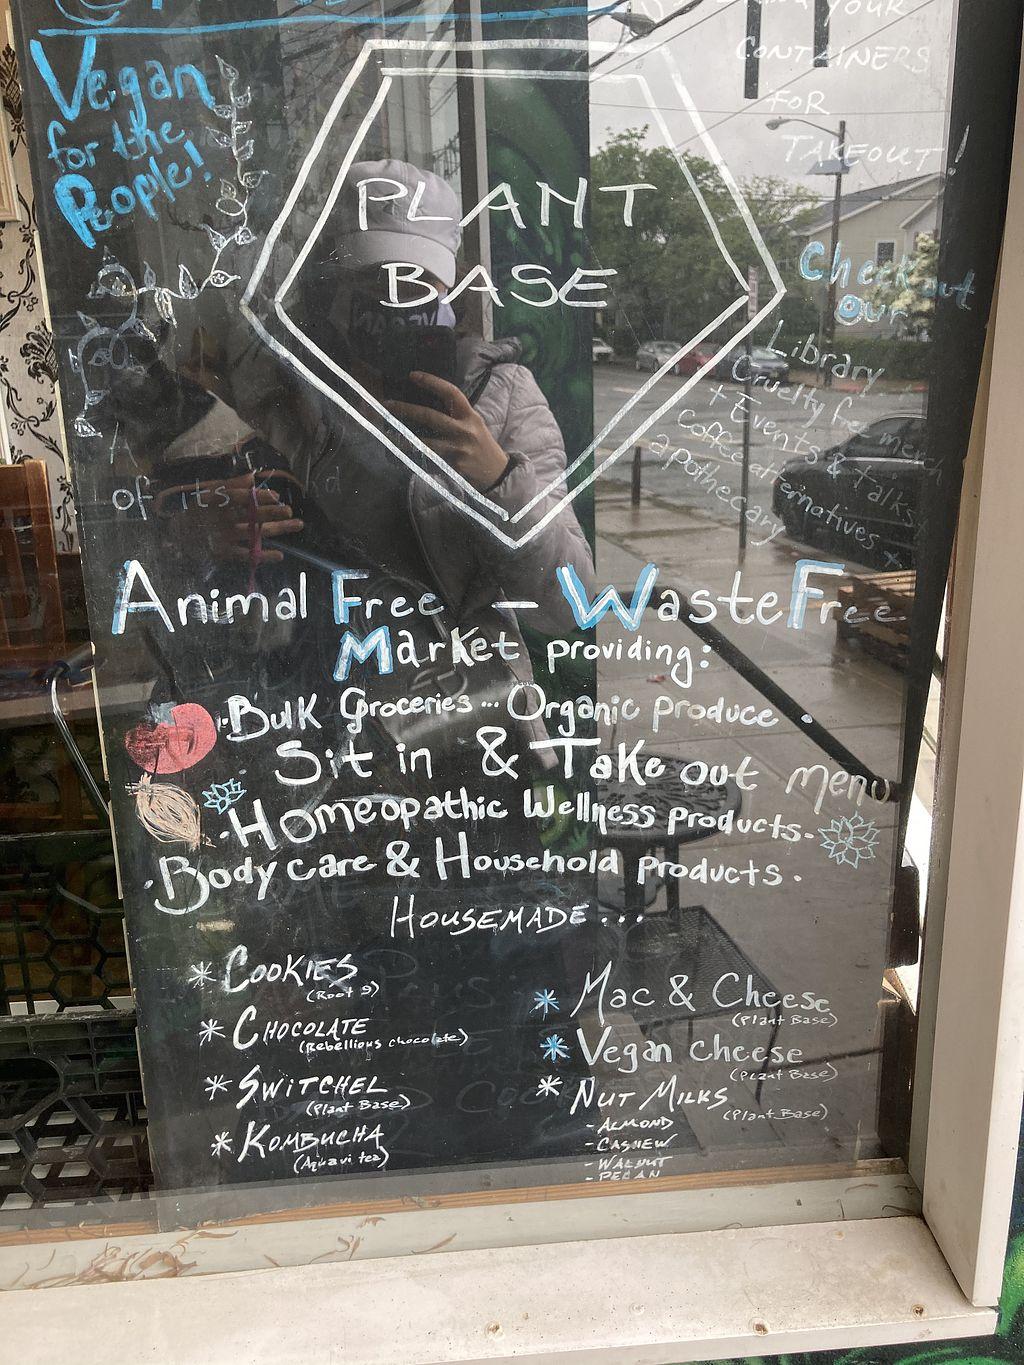 Vegan
for the
People!
YOUR
CONTAINERS
FOR
TAKEOUT!
PLANT
BASE
Check out
our
Library
Cruelty free merch
+ Events & talks
Coffee alternatives +
apothecary
A
of its kind
Animal Free - Waste Free
Market providing:
·Bulk Groceries... Organic produce ·
Sit in & Take out menu
·Homeopathic Wellness products·
·Body care & Household products·
HOUSEMADE...
* COOKIES
(Root 9)
* CHOCOLATE
(Rebellious chocolate)
* SWITCHEL
(Plant Base)
* KOMBUCHA
(Aquavi tea)
* Mac & Cheese
(Plant Base)
* Vegan cheese
(Plant Base)
* NUT MILKS
(Plant Base)
- ALMOND
- CASHEW
- WALNUT
- PECAN